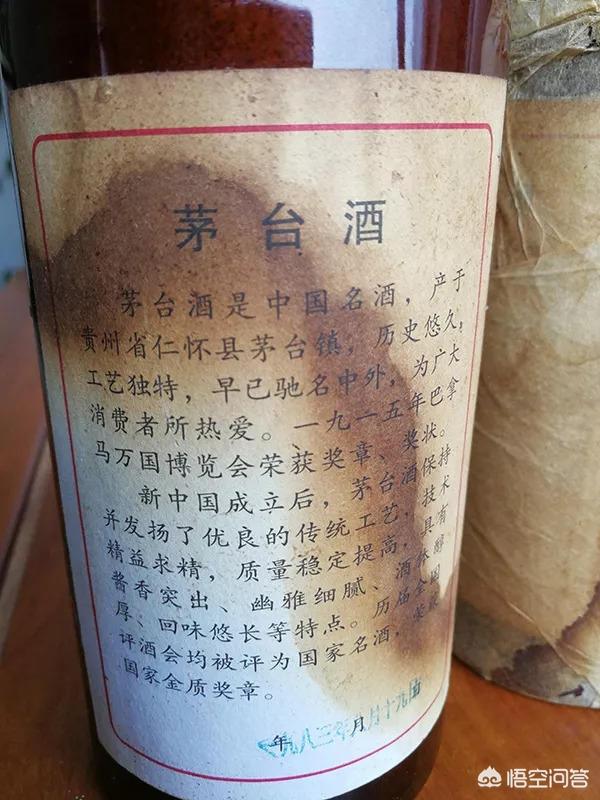 茅台酒
茅台酒是中国名酒，产于
贵州省仁怀县茅台镇，历史悠久，
工艺独特，早已驰名中外，为广大
消费者所热爱。一九一五年巴拿
马万国博览会荣获奖章、奖状。
新中国成立后，茅台酒保持
并发扬了优良的传统工艺，技术
精益求精，质量稳定提高，具有
酱香突出、幽雅细腻、酒体醇
厚、回味悠长等特点。历届全国
评酒会均被评为国家名酒，荣获
国家金质奖章。
一九八三年 月 十九
年 月
悟空问答